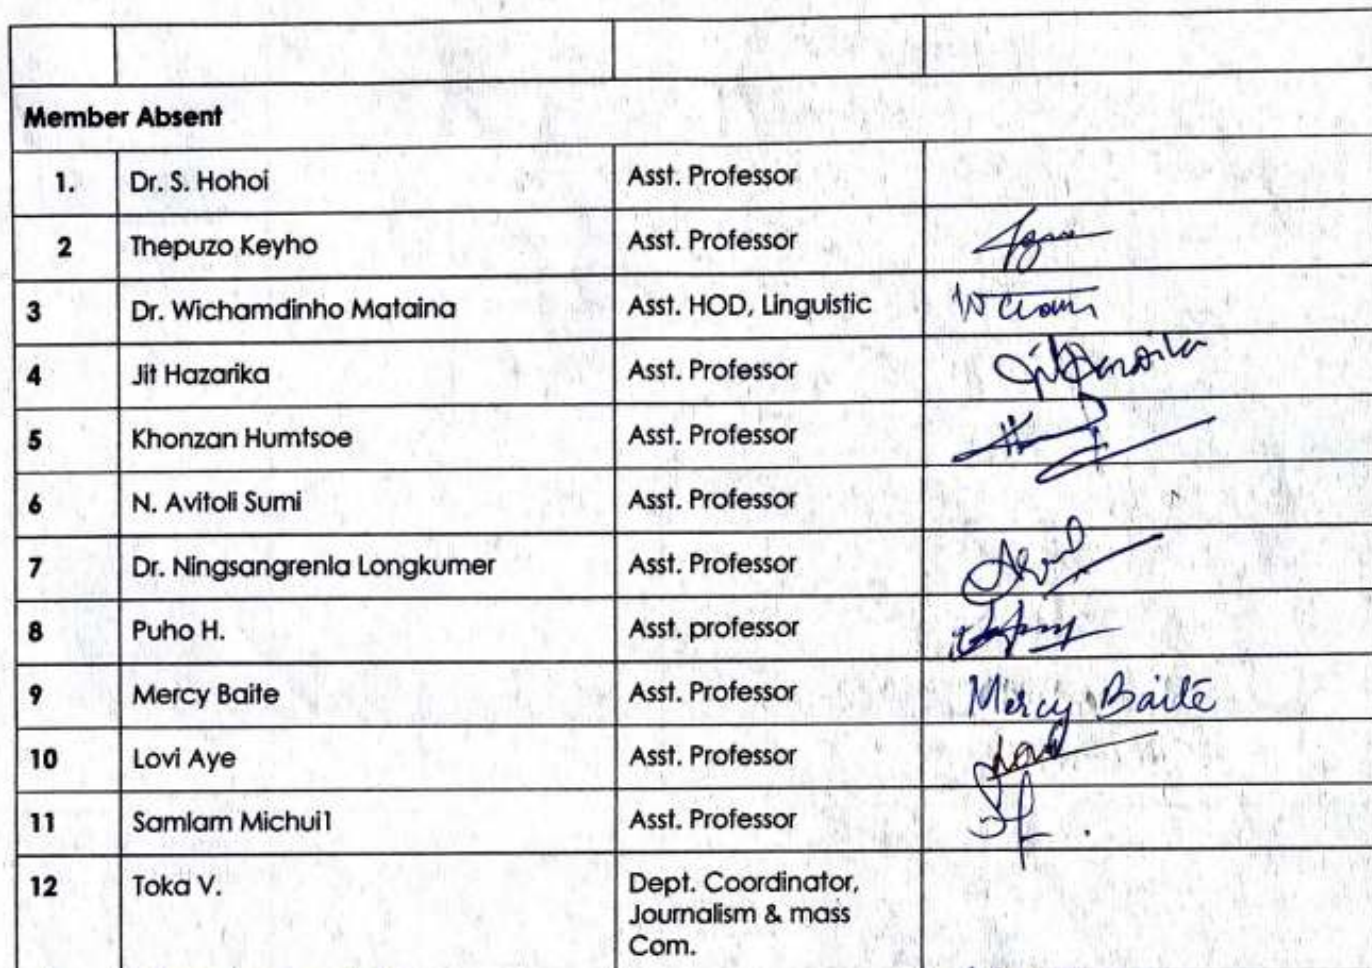 Member Absent
1. Dr. S. Hohoi Asst. Professor
2 Thepuzo Keyho Asst. Professor
3 Dr. Wichamdinho Mataina Asst. HOD, Linguistic
4 Jit Hazarika Asst. Professor Jit Hazarika
5 Khonzan Humtsoe Asst. Professor
6 N. Avitoli Sumi Asst. Professor
7 Dr. Ningsangrenla Longkumer Asst. Professor
8 Puho H. Asst. professor
9 Mercy Baite Asst. Professor Mercy Baite
10 Lovi Aye Asst. Professor
11 Samlam Michui1 Asst. Professor
12 Toka V. Dept. Coordinator,
Journalism & mass
Com.